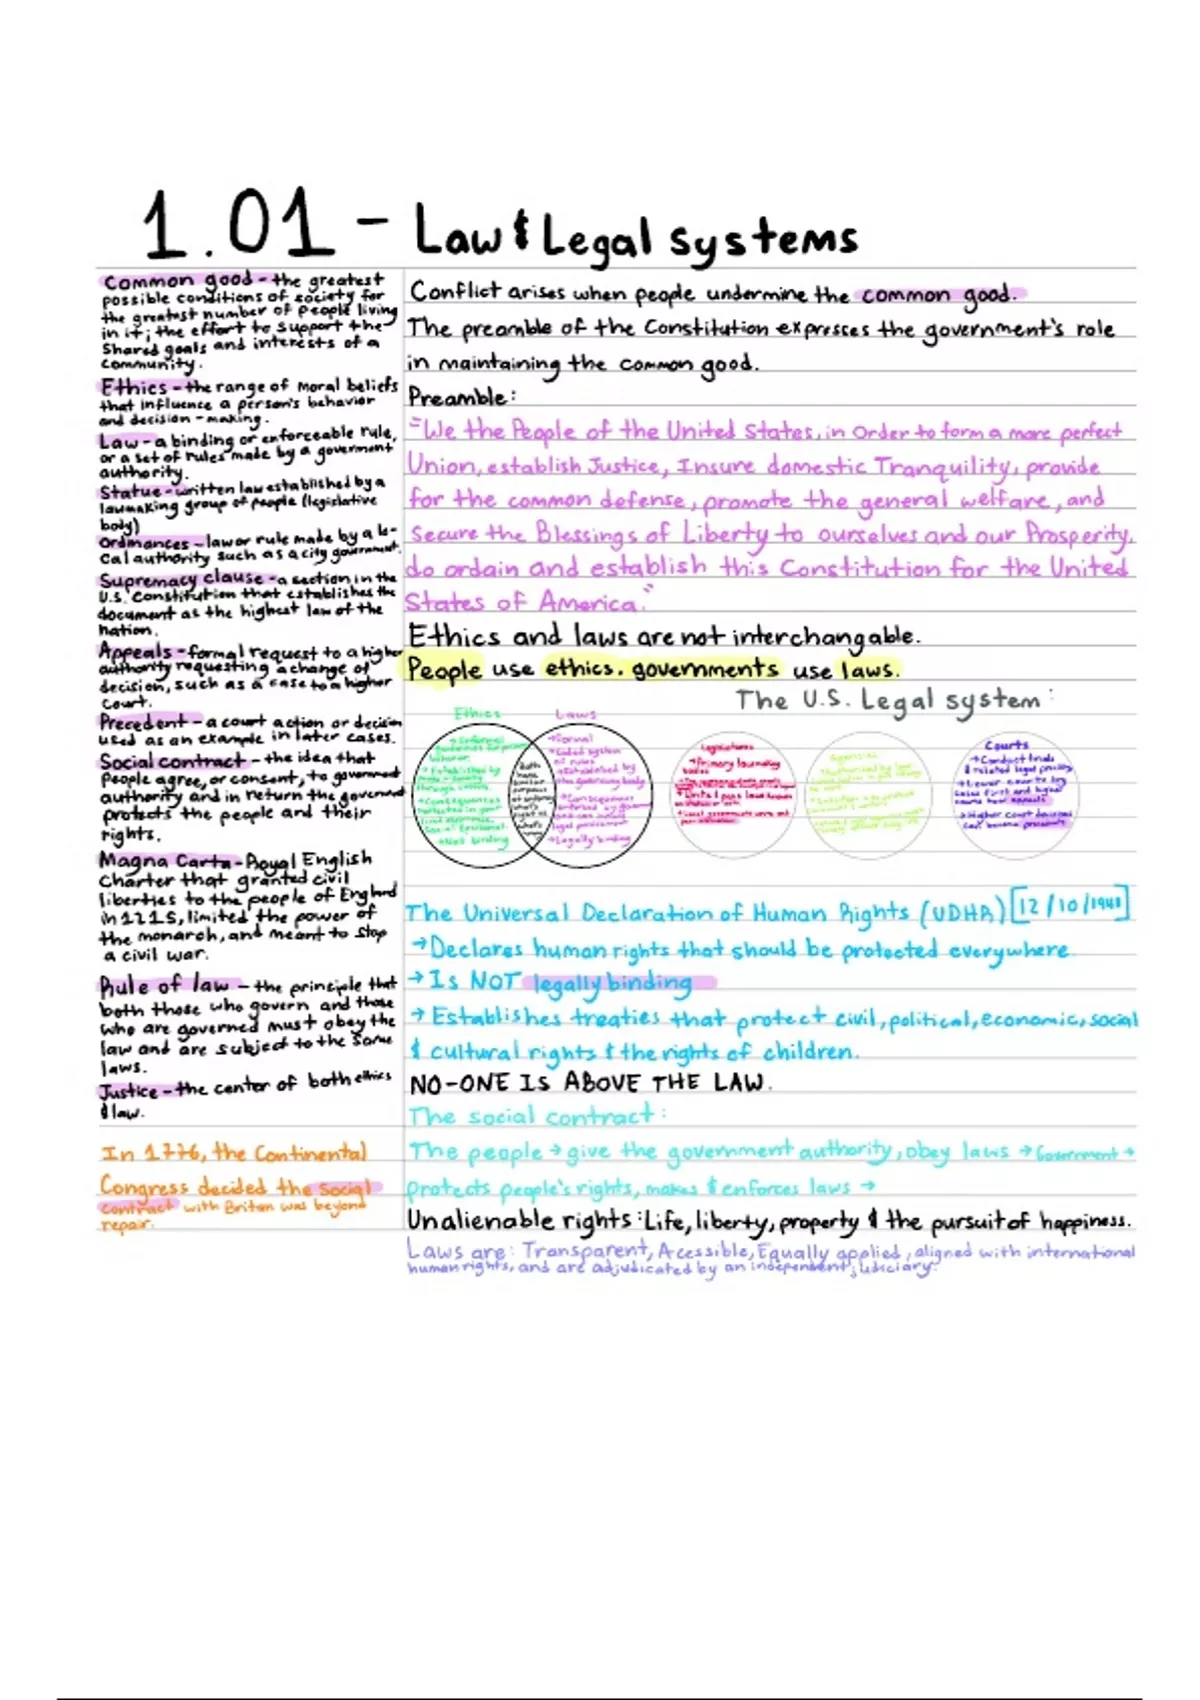 1.01 - Law & Legal systems
Common good - the greatest
possible conditions of society for
the greatest number of people living
in it; the effort to support the
Shared goals and interests of a
community.
Ethics - the range of moral beliefs
that influence a person's behavior
and decision-making.
Law - a binding or enforceable rule,
or a set of rules made by a goverment
authority.
Statue - written law established by a
lawmaking group of people (legislative
body)
Ordinances - law or rule made by a lo-
cal authority such as a city government.
Supremacy clause - a section in the
U.S. Constitution that establishes the
document as the highest law of the
nation.
Appeals - formal request to a higher
authority requesting a change of
decision, such as a case to a higher
court.
Precedent - a court action or decision
used as an example in later cases.
Social contract - the idea that
People agree, or consent, to government
authority and in return the government
protects the people and their
rights.
Magna Carta - Royal English
Charter that granted civil
liberties to the people of England
in 1215, limited the power of
the monarch, and meant to stop
a civil war.
Rule of law - the principle that
both those who govern and those
who are governed must obey the
law and are subject to the same
laws.
Justice - the center of both ethics
& law.
In 1776, the Continental
Congress decided the social
contract with Britan was beyond
repair.
Conflict arises when people undermine the common good.
The preamble of the Constitution expresses the government's role
in maintaining the common good.
Preamble:
"We the People of the United States, in Order to form a more perfect
Union, establish Justice, Insure domestic Tranquility, provide
for the common defense, promote the general welfare, and
secure the Blessings of Liberty to ourselves and our Prosperity,
do ordain and establish this Constitution for the United
States of America."
Ethics and laws are not interchangable.
People use ethics. governments use laws.
The U.S. Legal system:
Ethics
Laws
→ Informal
→ Established by
→ Consequences
→ Not binding
Both
have
→ Formal
→ Coded system
of rules
→ Established by
legal
→ Legally binding
Legislatures
→ Primary lawmaking
Courts
→ Conduct trials
& related legal
→ Lower courts
cases first and higher
courts hear appeals
→ Higher court decisions
can become precedents
The Universal Declaration of Human Rights (UDHR) [12/10/1948]
→ Declares human rights that should be protected everywhere.
→ Is NOT legally binding
→ Establishes treaties that protect civil, political, economic, social
& cultural rights & the rights of children.
NO-ONE IS ABOVE THE LAW.
The social contract:
The people → give the government authority, obey laws → Government →
protects people's rights, makes & enforces laws →
Unalienable rights: Life, liberty, property & the pursuit of happiness.
Laws are: Transparent, Acessible, Equally applied, aligned with international
human rights, and are adjudicated by an independent judiciary.